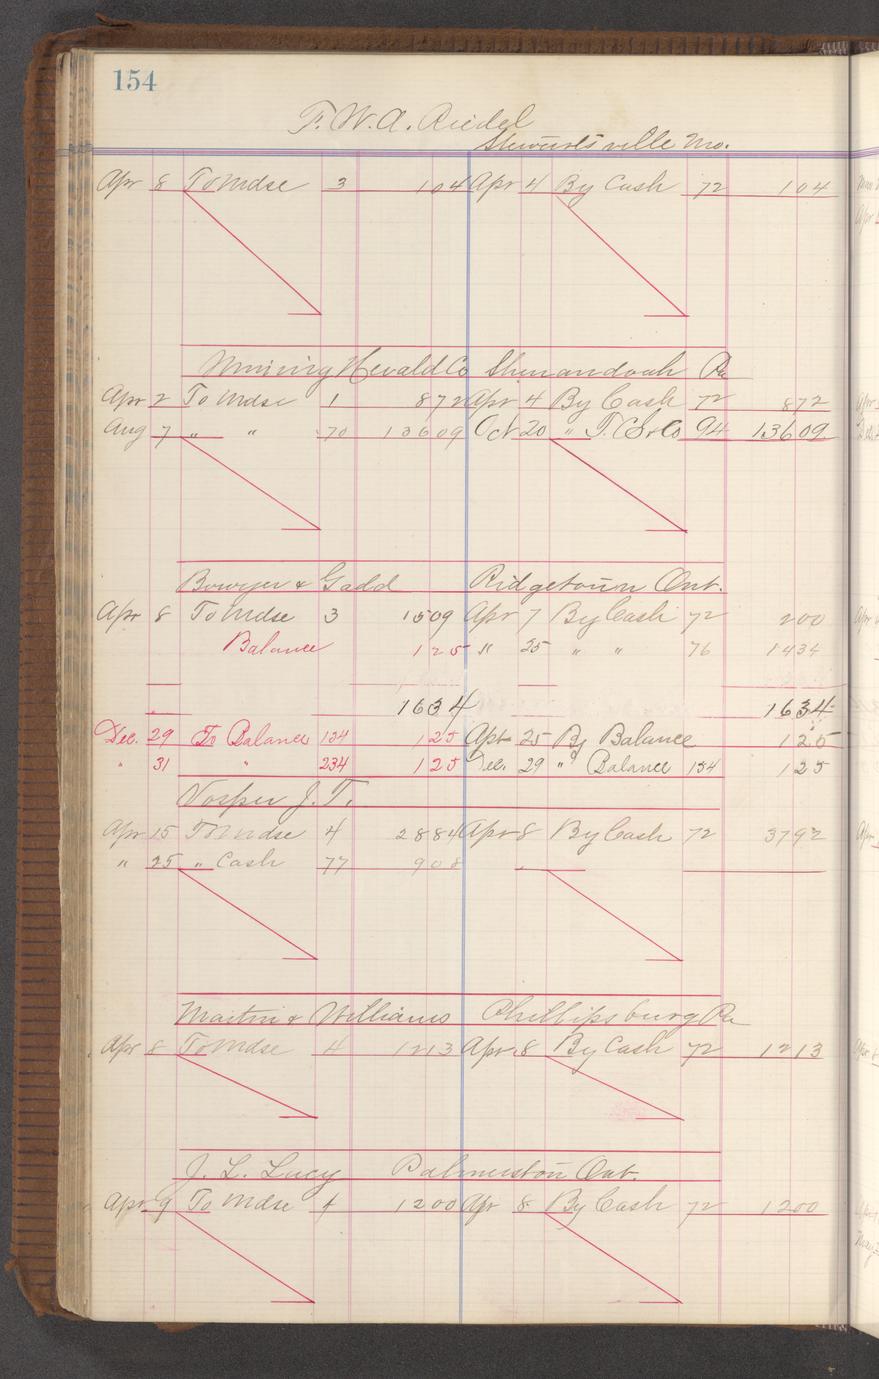 154
F. W. A. Riedel
Stewartsville Mo.
Apr 8 To Mdse 3 104 Apr 4 By Cash 72 104
Mining Herald Co Shenandoah Pa
Apr 2 To Mdse 1 872 Apr 4 By Cash 72 872
Aug 7 " " 70 13609 Oct 20 " T. C. S. & Co 94 13609
Bowyer & Gadd Ridgetown Ont.
Apr 8 To Mdse 3 1509 Apr 7 By Cash 72 200
Balance 125 " 25 " " 76 1434
1634 1634
Dec. 29 To Balance 154 125 Apr 25 By Balance 125
" 31 " 234 125 Dec. 29 " Balance 154 125
Vosper J. T.
Apr 15 To Mdse 4 2884 Apr 8 By Cash 72 3792
" 25 " Cash 77 908
Martin & Williams Phillipsburg Pa
Apr 8 To Mdse 4 1213 Apr 8 By Cash 72 1213
J. L. Lucy Palmerston Ont.
Apr 9 To Mdse 4 1200 Apr 8 By Cash 72 1200